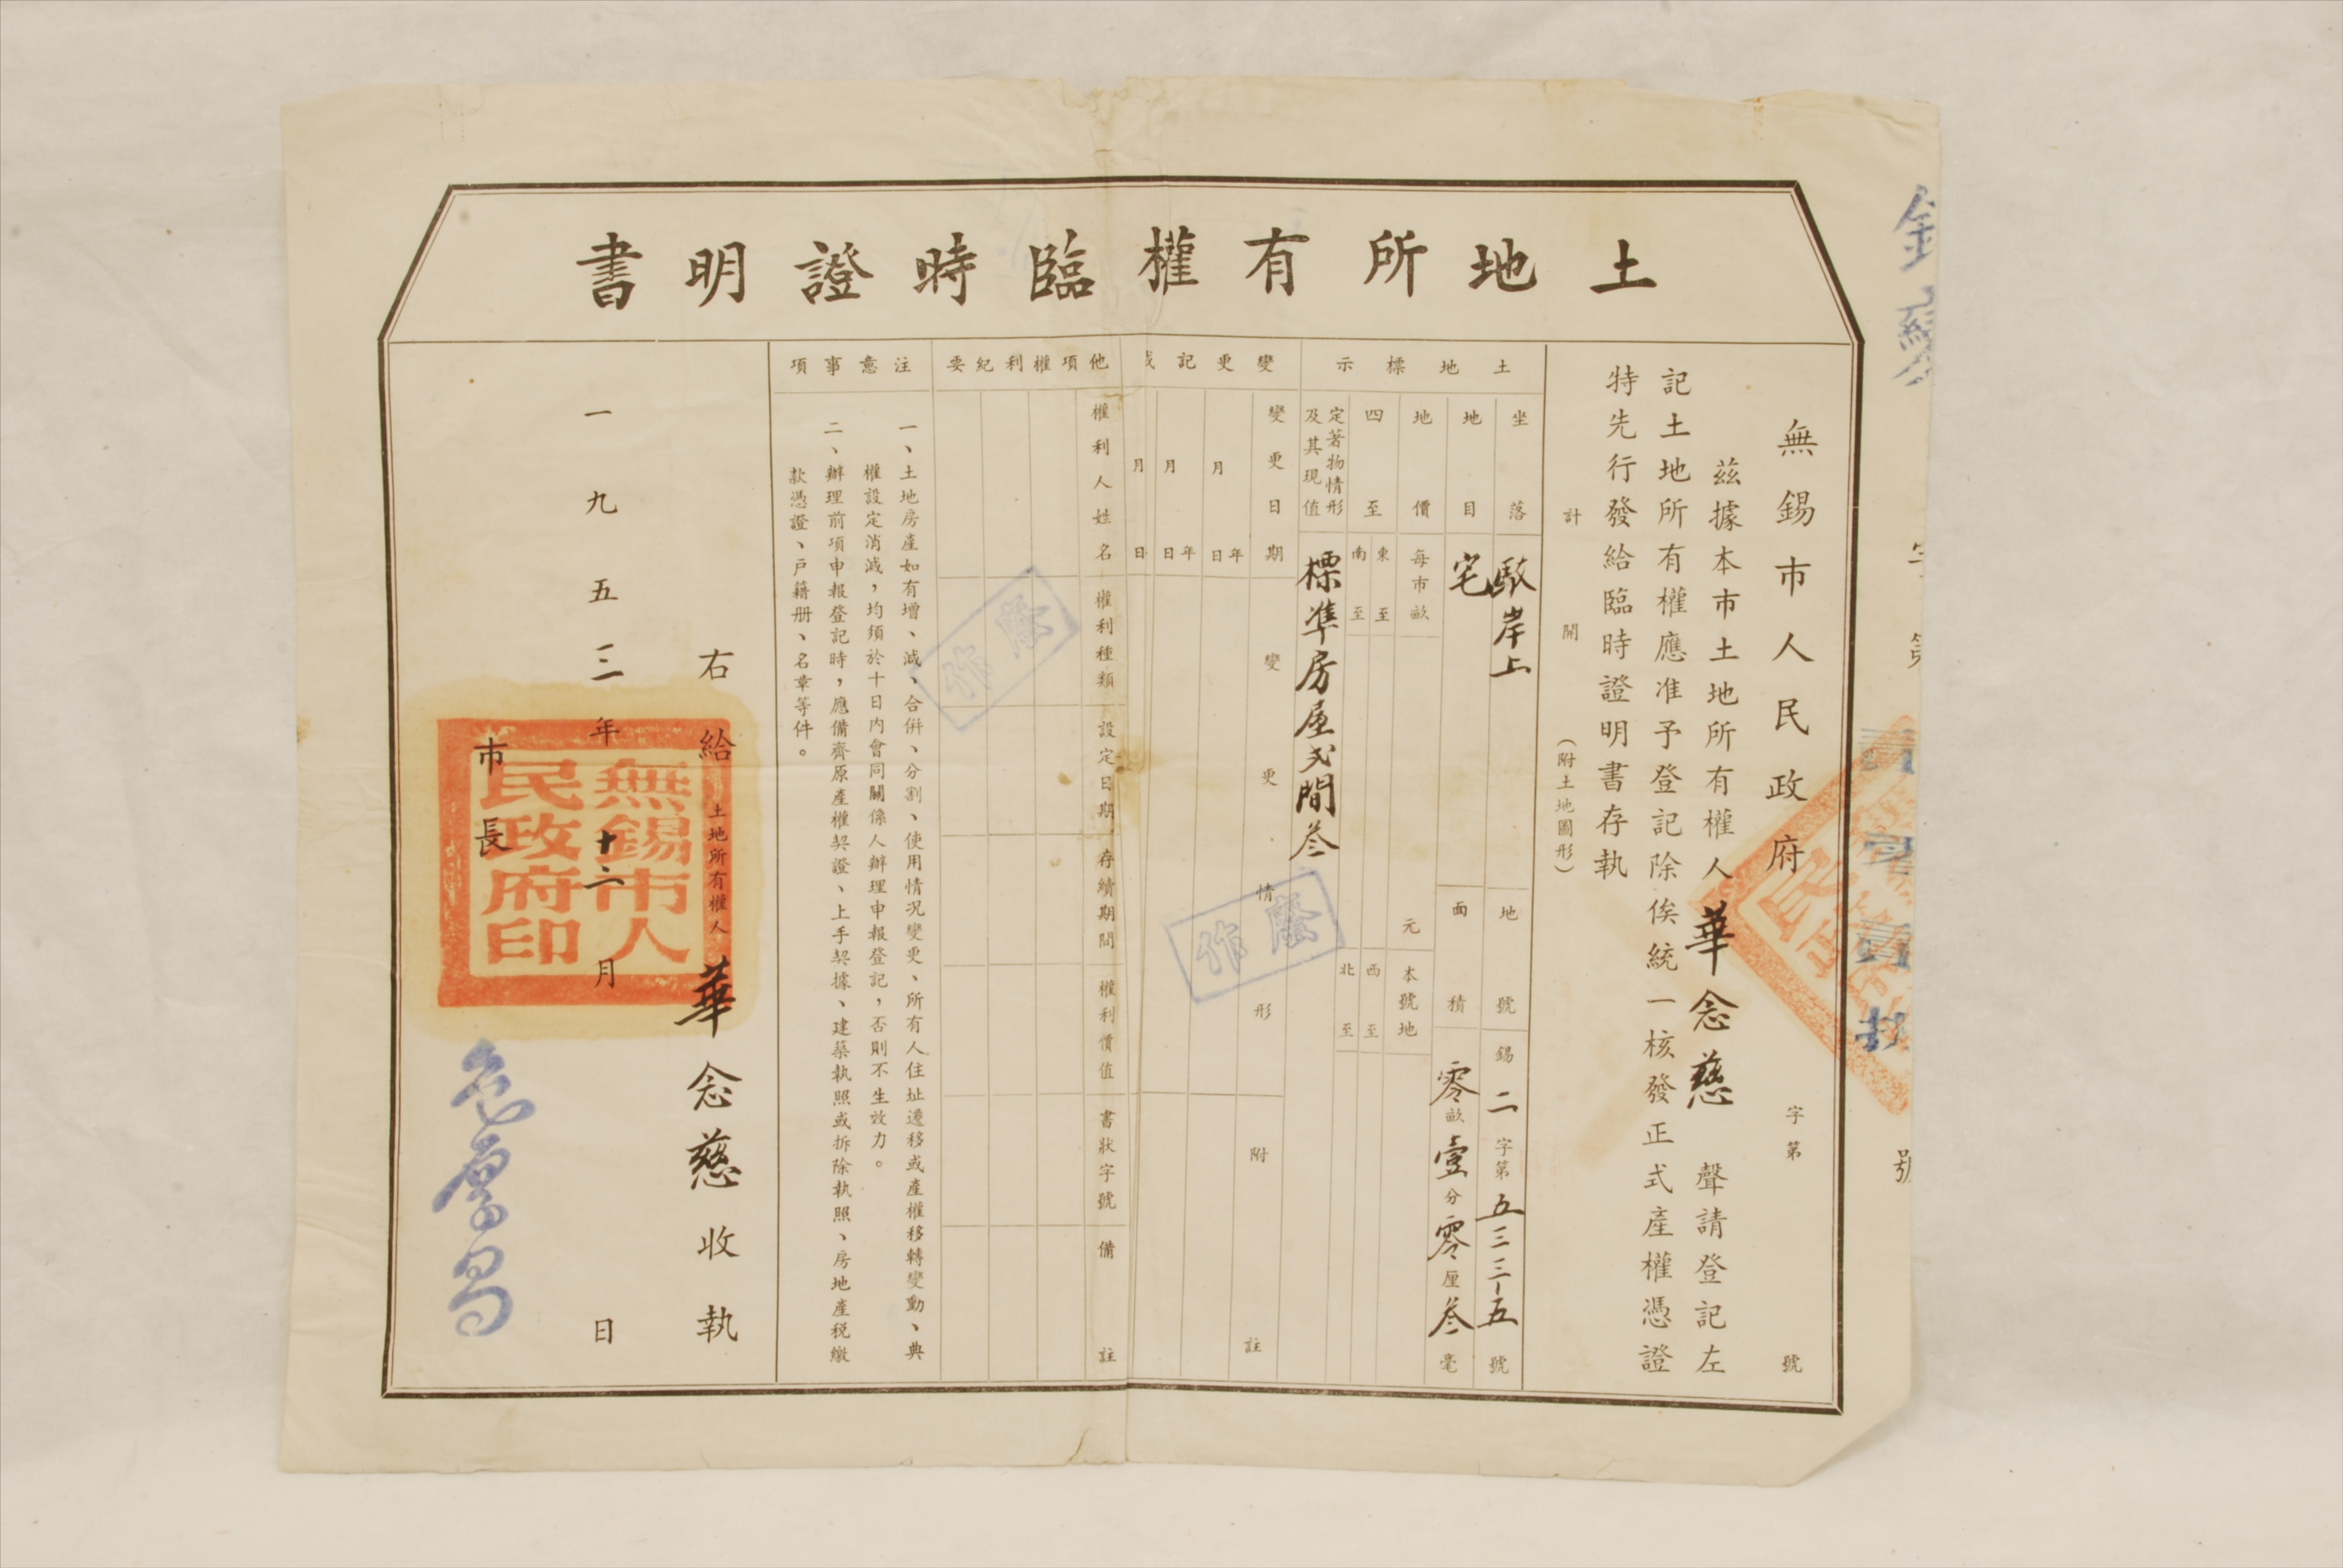 土地所有權臨時證明書
無錫市人民政府 字第 號
茲據本市土地所有權人華念慈 聲請登記左
記土地所有權應准予登記除俟統一核發正式產權憑證
特先行發給臨時證明書存執
計開 (附土地圖形)
土地標示
坐落 岸上
地號 錫二字第五三三-五號
地目 宅
面積 零畝壹分零厘叁毫
地價 每市畝 元 本號地
四至 東至 西至
南至 北至
定著物情形
及其現值
標準房屋弍間叁
變更記
變更日期 變更情形 附註
年月日
年月日
月日
他項權利紀要
權利人姓名 權利種類 設定日期 存續期間 權利價值 書狀字號 備註
注意事項
一、土地房產如有增、減、合併、分割、使用情況變更、所有人住址遷移或產權移轉變動、典
權設定消滅,均須於十日內會同關係人辦理申報登記,否則不生效力。
二、辦理前項申報登記時,應備齊原產權契證、上手契據、建築執照或拆除執照、房地產税繳
款憑證、戶籍册、名章等件。
右給 土地所有權人 華念慈收執
一九五三年十二月 日
市長
無錫市人
民政府印
作廢
作廢
號